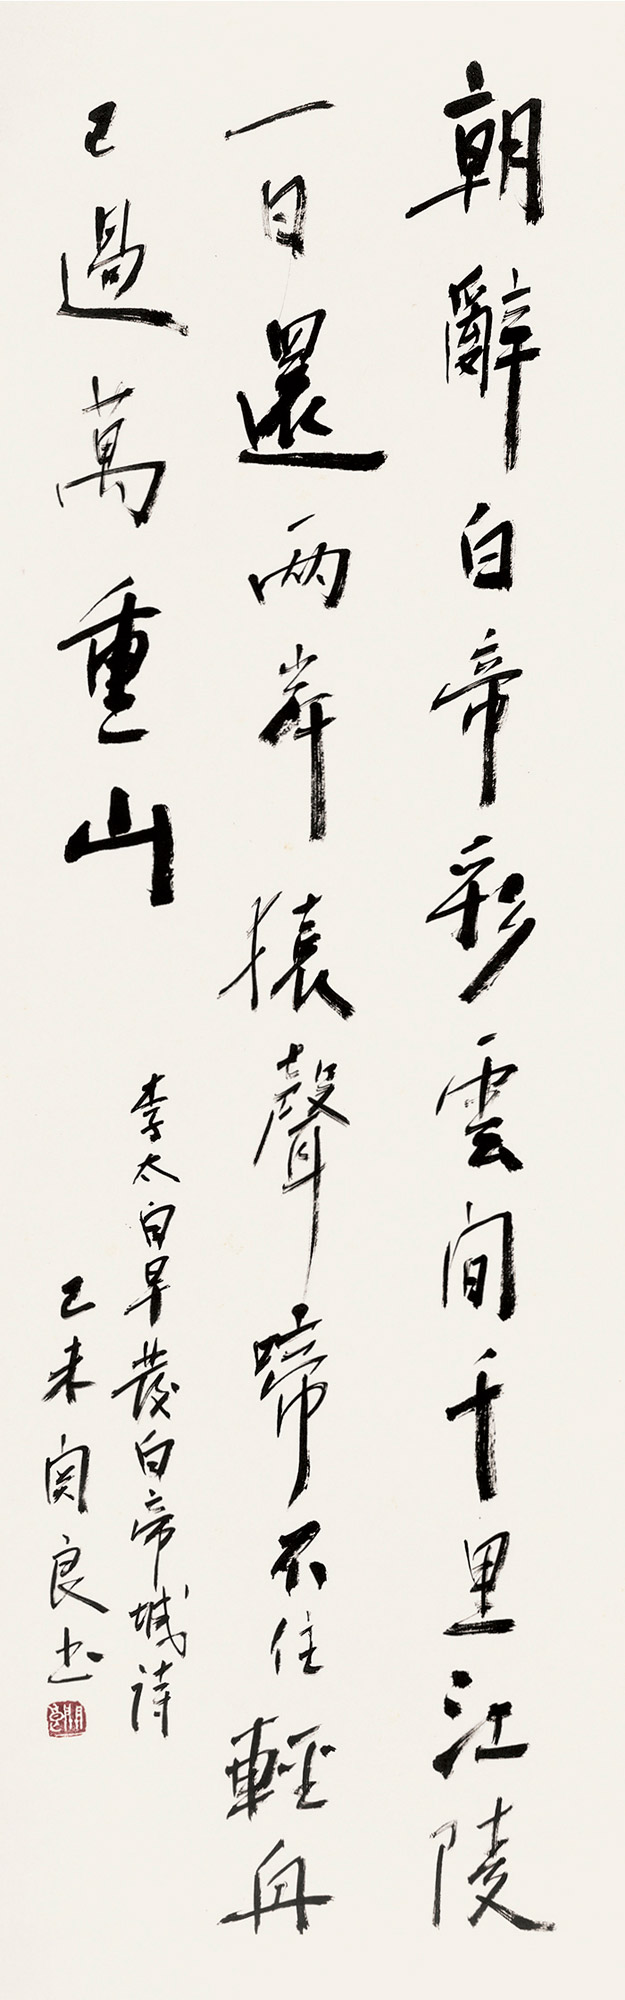 朝辭白帝彩雲间千里江陵
一日還两岸猿聲啼不住輕舟
已過萬重山
李太白早發白帝城詩
己未関良书
關良